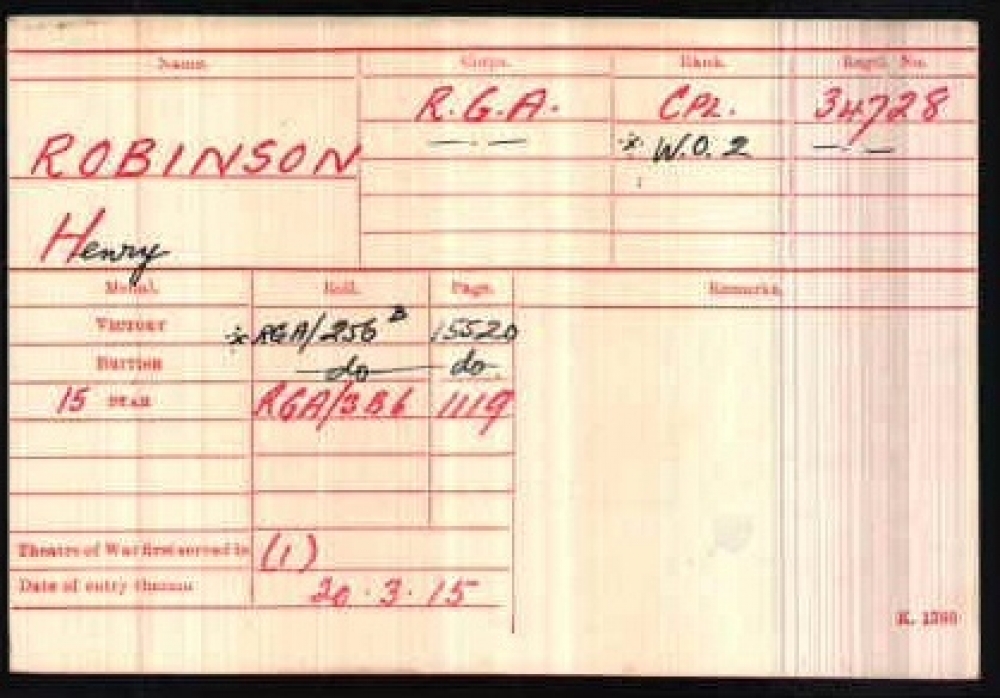 Name. Corps. Rank. Regtl. No.
R.G.A. CPL. 34728
ROBINSON — . — ※ W.O. 2 — . —
Henry
Medal. Roll. Page. Remarks.
VICTORY ※ RGA/256 B 15520
BRITISH do do
15 STAR RGA/3B6 1119
Theatre of War first served in (1)
Date of entry therein 20.3.15
K. 1380